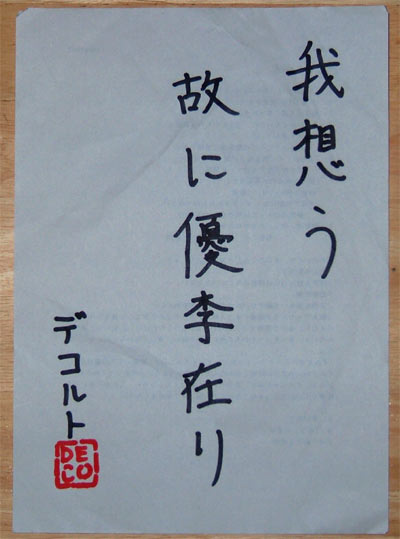 我想う
故に優李在り
デコルト
DECO